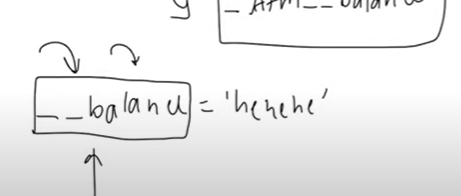 _ATM__balance
__balance = 'hehehe'